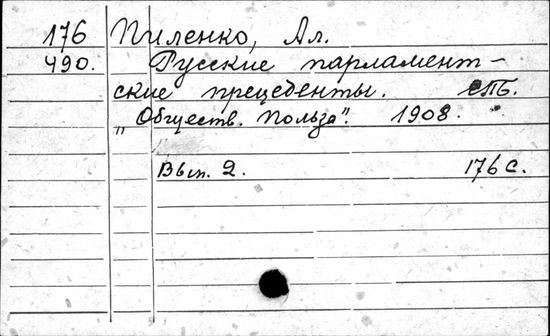 176 Пиленко, Ал.
490. Русские парламент-
ские прецеденты. СПБ.
„Обществ. Польза". 1908.
Вып. 2. 176 с.